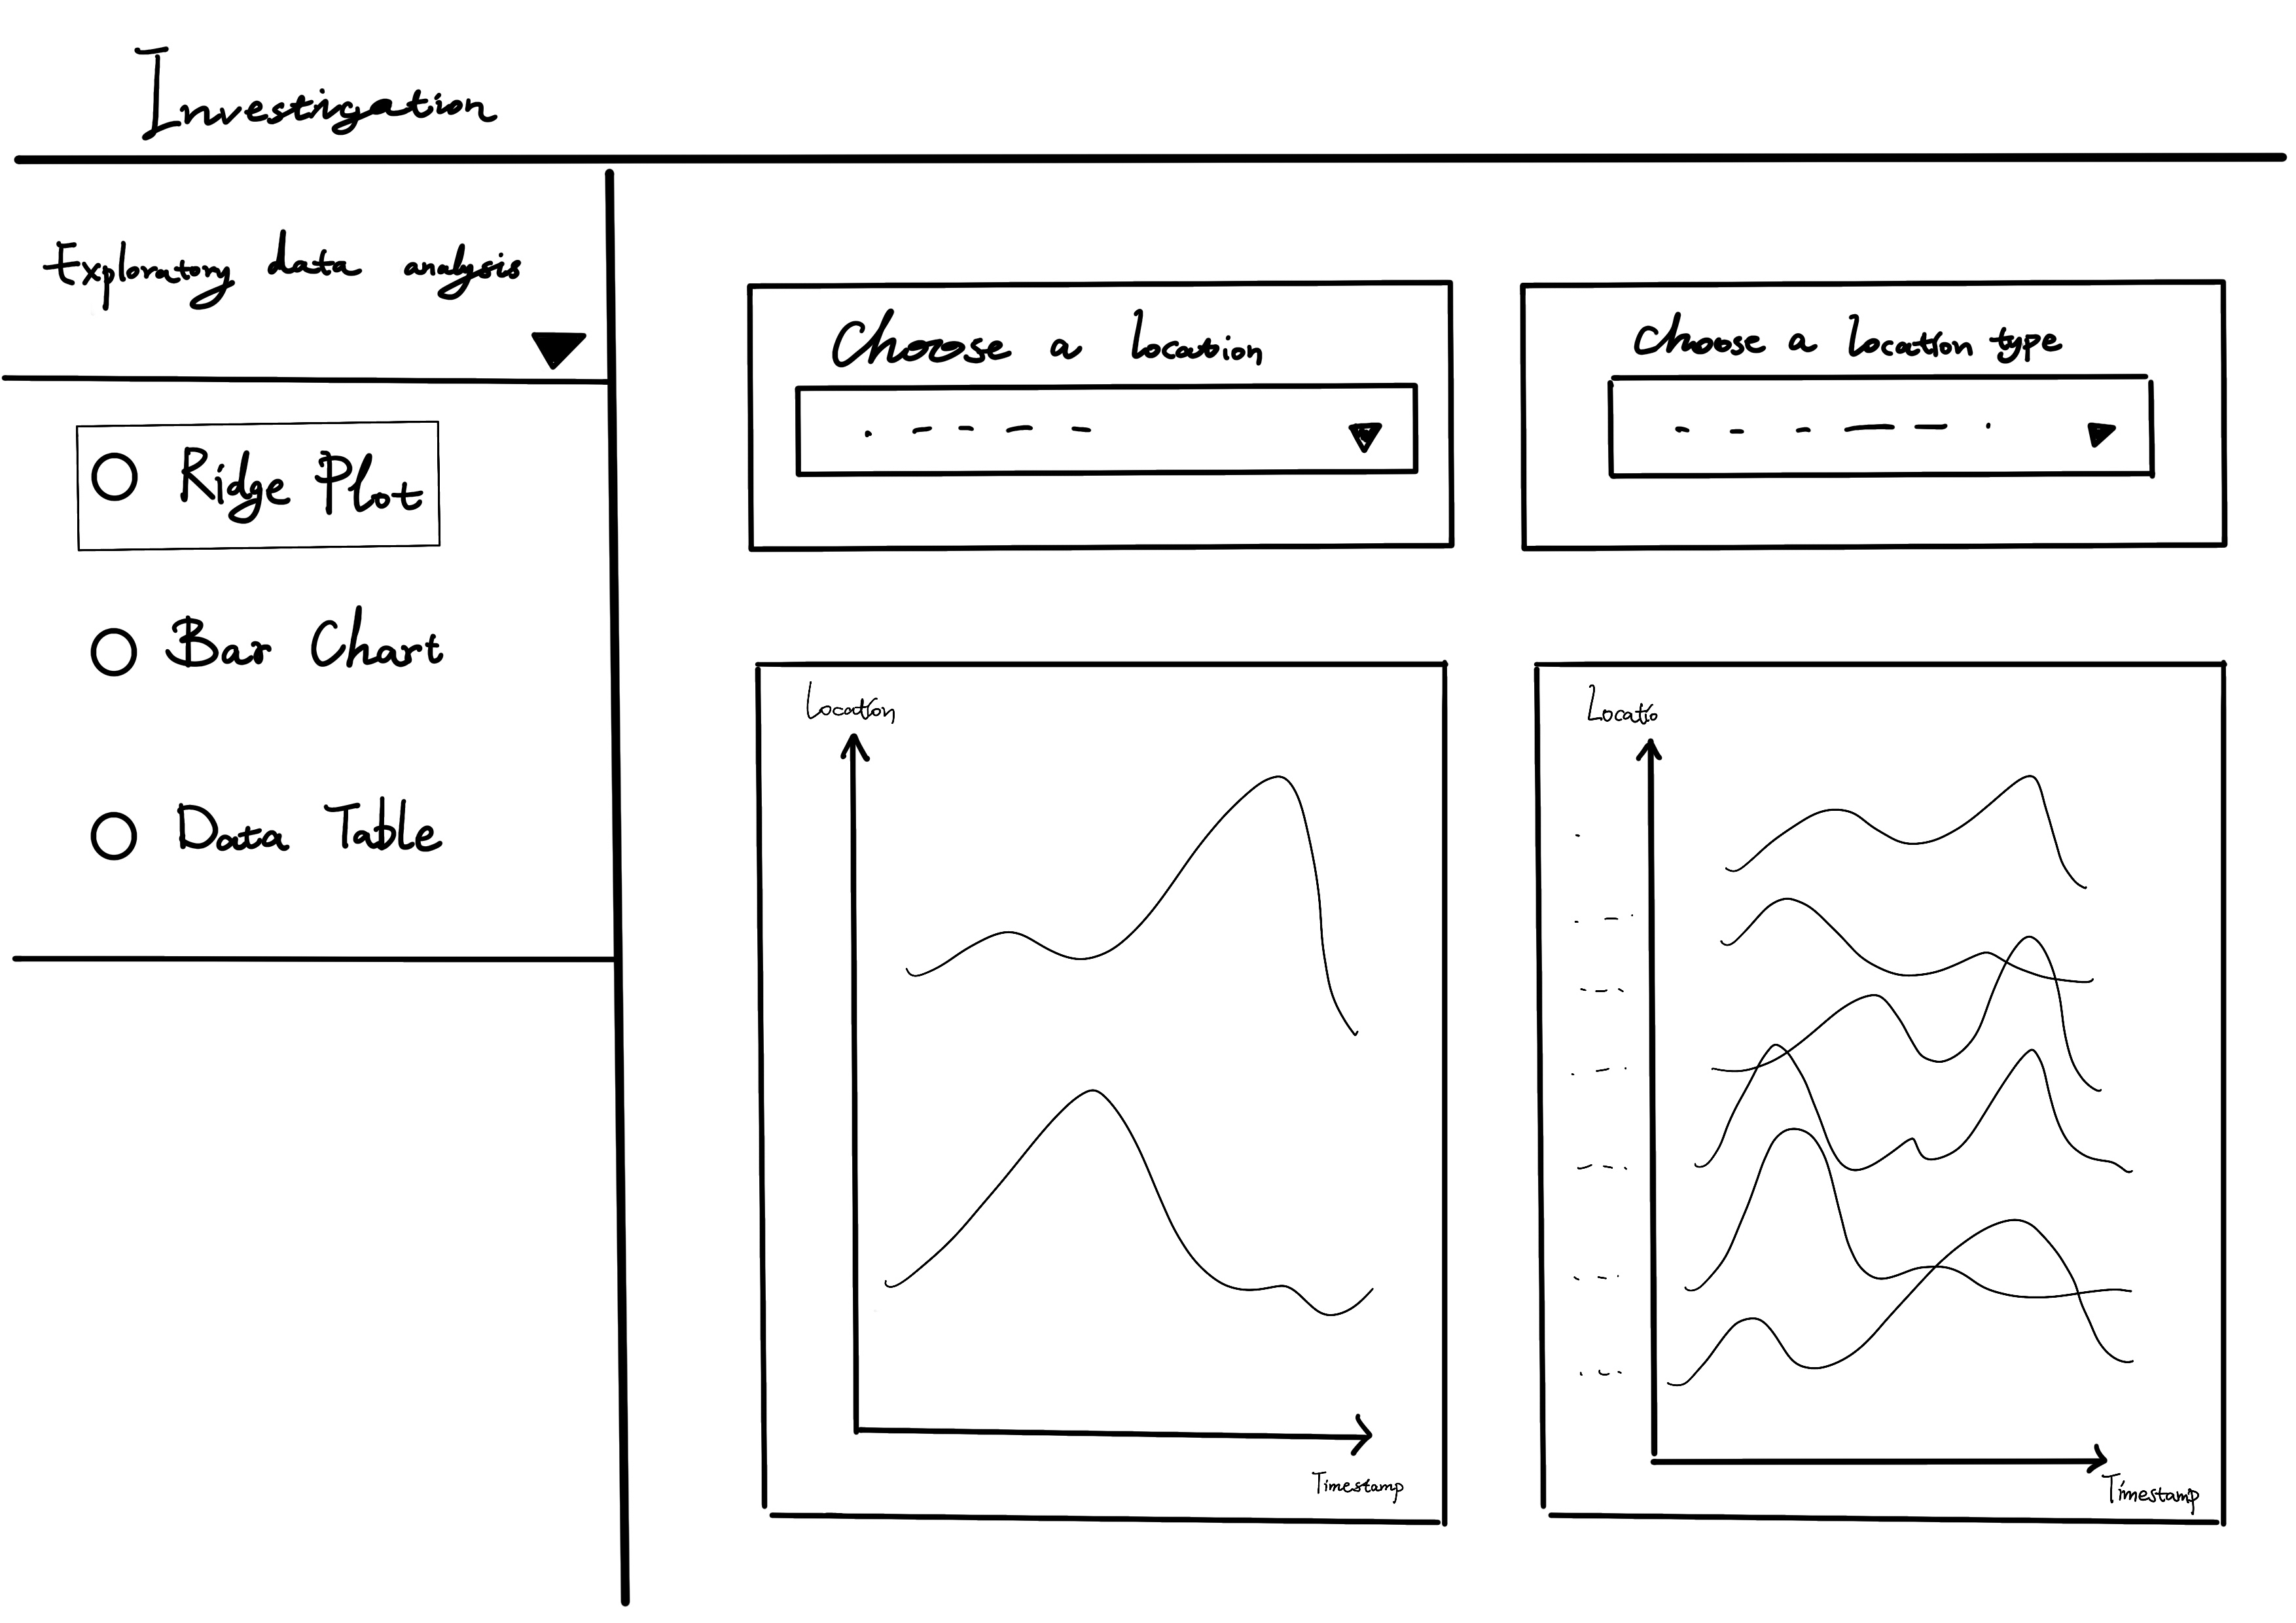 Investigation
Exploratory data analysis
Ridge Plot
Bar Chart
Data Table
Choose a location
Choose a location type
Location
Timestamp
Locatio
Timestamp